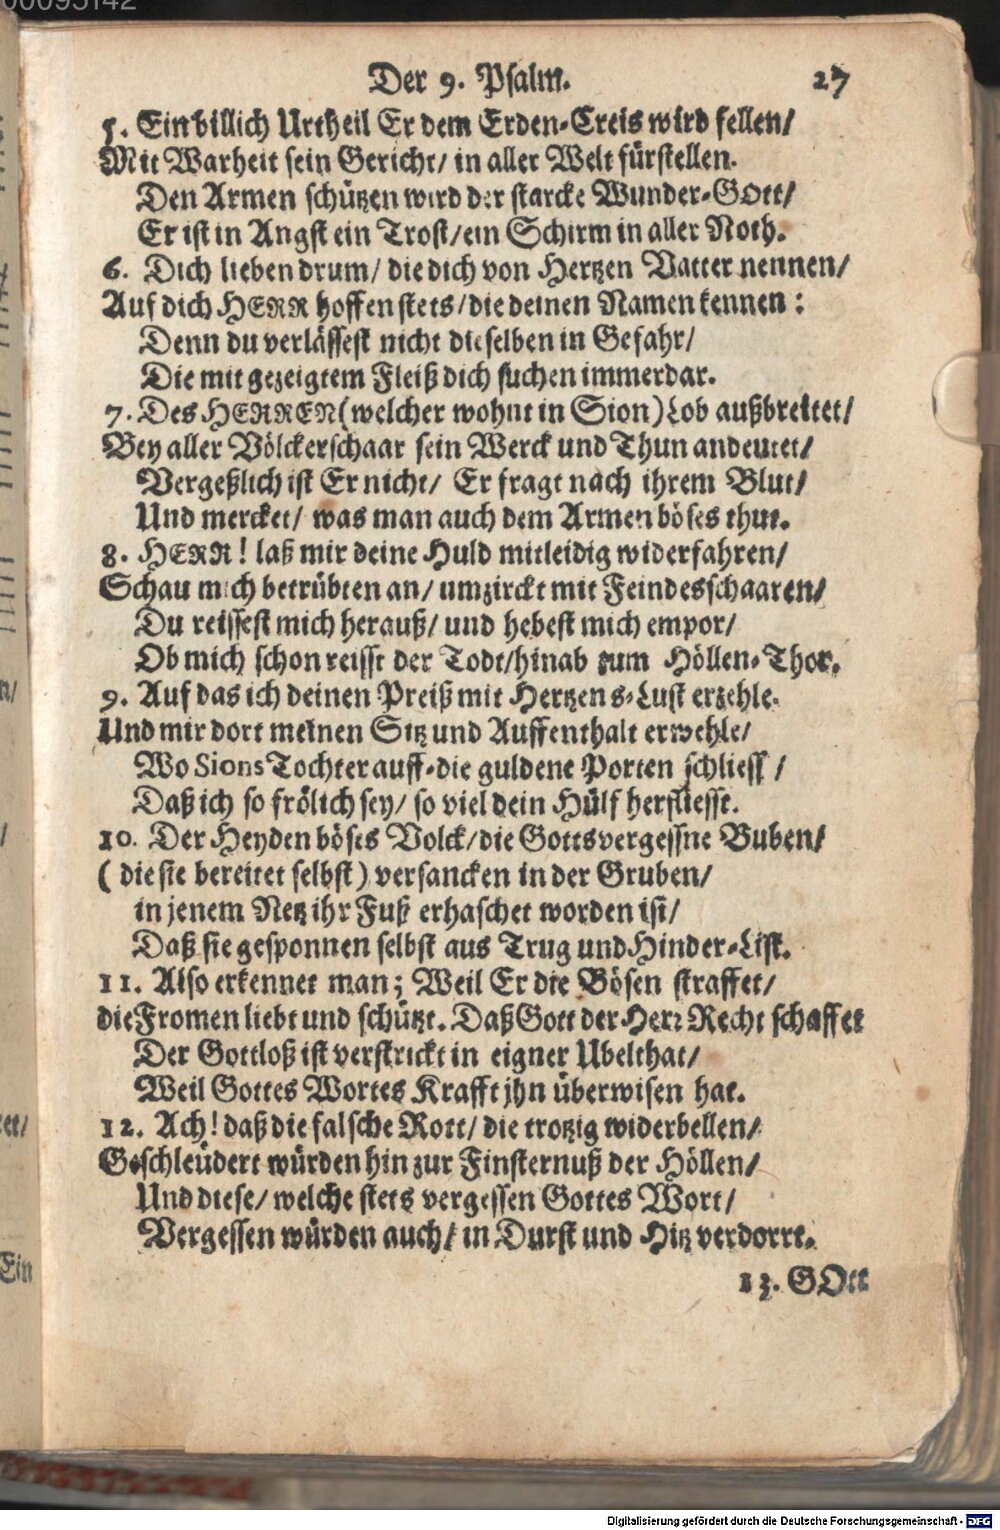 Der 9. Psalm. 27
5. Ein billich Urtheil Er dem Erden-Creis wird fellen/
Mit Warheit sein Gericht/ in aller Welt fürstellen.
Den Armen schützen wird der starcke Wunder-GOtt/
Er ist in Angst ein Trost/ ein Schirm in aller Noth.
6. Dich lieben drum/ die dich von Hertzen Vatter nennen/
Auf dich HERR hoffen stets/ die deinen Namen kennen:
Denn du verlässest nicht dieselben in Gefahr/
Die mit gezeigtem Fleiß dich suchen immerdar.
7. Des HERREN (welcher wohnt in Sion) Lob außbreitet/
Bey aller Völckerschaar sein Werck und Thun andeutet/
Vergeßlich ist Er nicht/ Er fragt nach ihrem Blut/
Und mercket/ was man auch dem Armen böses thut.
8. HERR! laß mir deine Huld mitleidig widerfahren/
Schau mich betrübten an/ umzirckt mit Feindesschaaren/
Du reissest mich herauß/ und hebest mich empor/
Ob mich schon reisst der Todt/ hinab zum Höllen-Thor.
9. Auf das ich deinen Preiß mit Hertzens-Lust erzehle.
Und mir dort meinen Sitz und Auffenthalt erwehle/
Wo Sions Tochter auff-die guldene Porten schliess /
Daß ich so frölich sey/ so viel dein Hülf herfliesst.
10. Der Heyden böses Volck/ die Gottsvergessne Buben/
( die sie bereitet selbst ) versancken in der Gruben/
in jenem Netz ihr Fuß erhaschet worden ist/
Daß sie gesponnen selbst aus Trug und Hinder-List.
11. Also erkennet man; Weil Er die Bösen straffet/
die Fromen liebt und schützt. Daß Gott der Herr Recht schaffet
Der Gottloß ist verstrickt in eigner Ubelthat/
Weil Gottes Wortes Krafft jhn überwisen hat.
12. Ach! daß die falsche Rott/ die trotzig widerbellen/
Geschleudert würden hin zur Finsternuß der Höllen/
Und diese/ welche stets vergessen Gottes Wort/
Vergessen würden auch/ in Durst und Hitz verdorrt.
13. GOtt
Ein
Digitalisierung gefördert durch die Deutsche Forschungsgemeinschaft - DFG